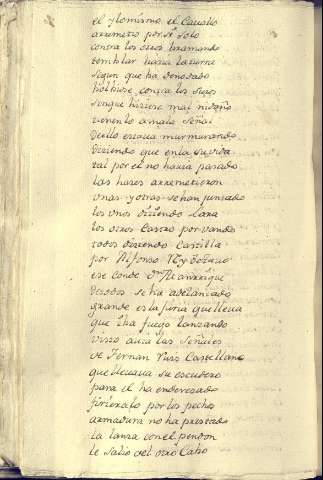 el y lo mismo el Cauallo
arremetio por sí solo
contra los otros bramando
temblar hacia la tierra
segun que ha denodado
bolbiose contra los suyos
sin que hiziese mal ni daño
tienenlo a mala señal
dello estaua murmurando
diziendo que en la su vida
tal por el no hauia pasado
las hazes arremetieron
vnas y otras se han juntado
los vnos diziendo Lara
los otros Castro por vando
todos diziendo Castilla
por Alfonso Rey
ese conde Dn Manrrique
de todos se ha adelantado
grande es la furia que lleua
que iba fuego lanzando
vizio auia las Señales
de Fernan Ruiz Castellano
que lleuaua su escudero
para el ha enderezado
firieralo por los pechos
armadura no ha prestado
la lanza con el pendon
le salio del otro Cabo